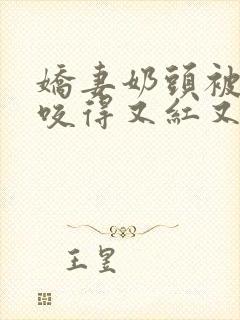 嬌妻奶頭被
咬得又紅又
王昱